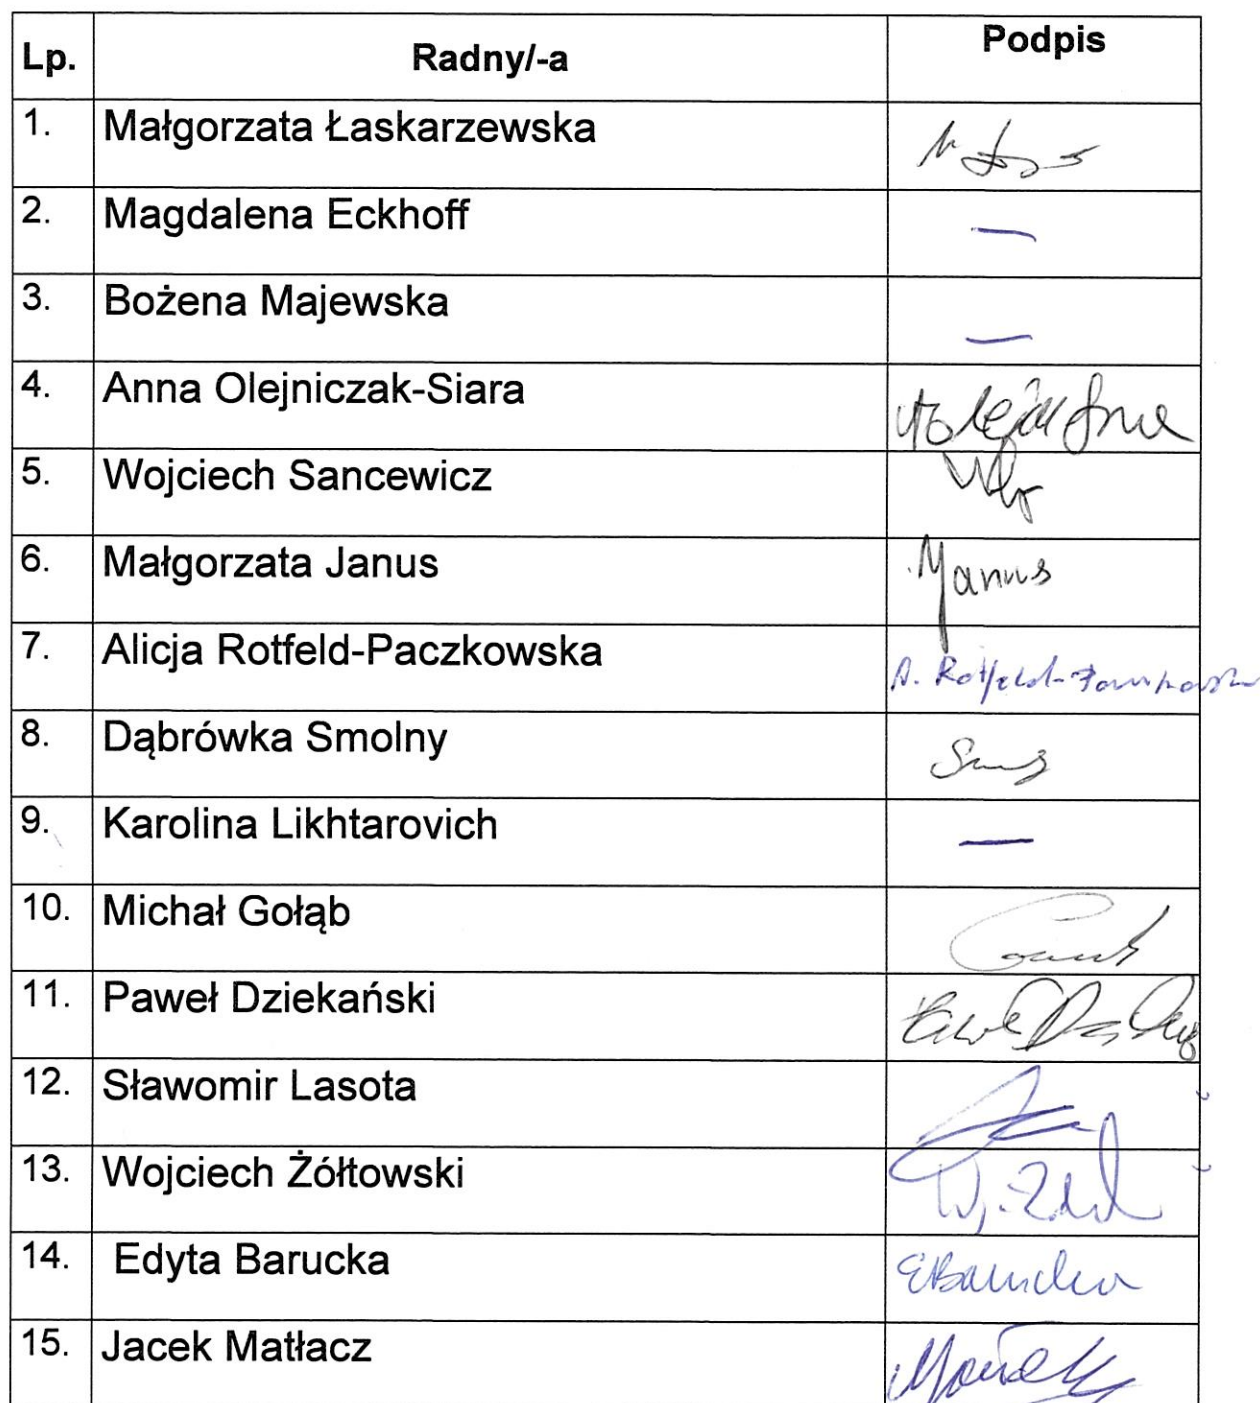 Lp. Radny/-a Podpis
1. Małgorzata Łaskarzewska
2. Magdalena Eckhoff —
3. Bożena Majewska —
4. Anna Olejniczak-Siara
5. Wojciech Sancewicz
6. Małgorzata Janus Janus
7. Alicja Rotfeld-Paczkowska A. Rotfeld-Paczkowska
8. Dąbrówka Smolny
9. Karolina Likhtarovich —
10. Michał Gołąb
11. Paweł Dziekański
12. Sławomir Lasota
13. Wojciech Żółtowski
14. Edyta Barucka EBarucka
15. Jacek Matłacz